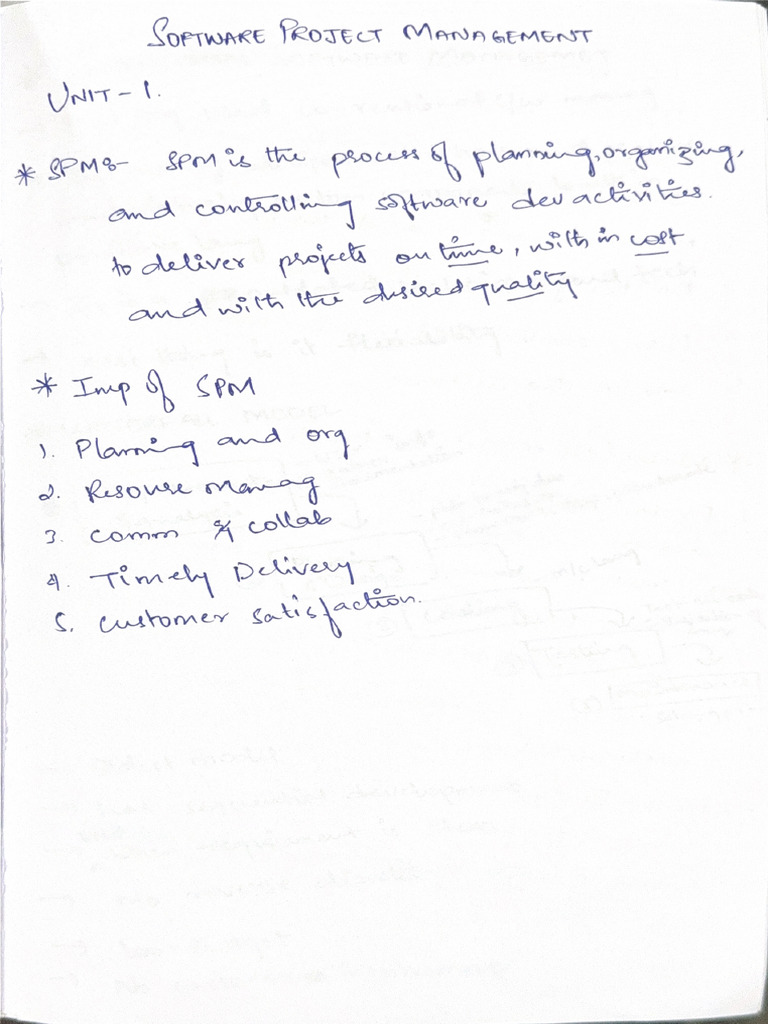 SOFTWARE PROJECT MANAGEMENT
UNIT - 1.
* SPM:- SPM is the process of planning, organizing,
and controlling software dev activities.
to deliver projects on time, with in cost
and with the desired quality
* Imp of SPM
1. Planning and org
2. Resouse manag
3. Comm & collab
4. Timely Delivery
5. Customer satisfaction.